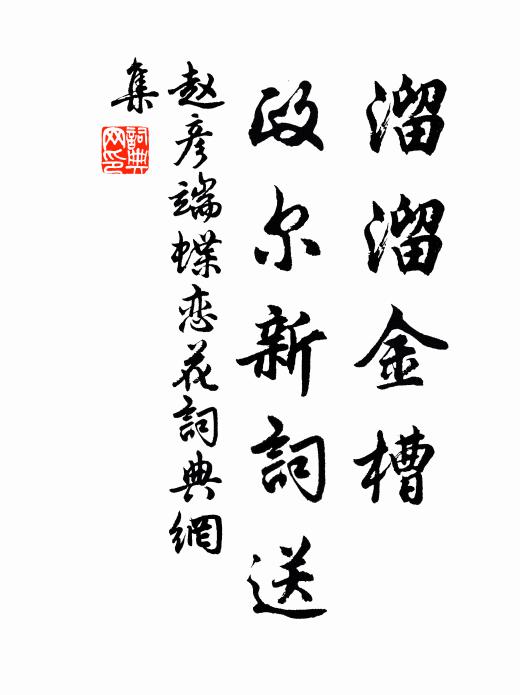 溜溜金槽
政尔新詞送
赵彦端蝶恋花詞典網
集
詞典
网印